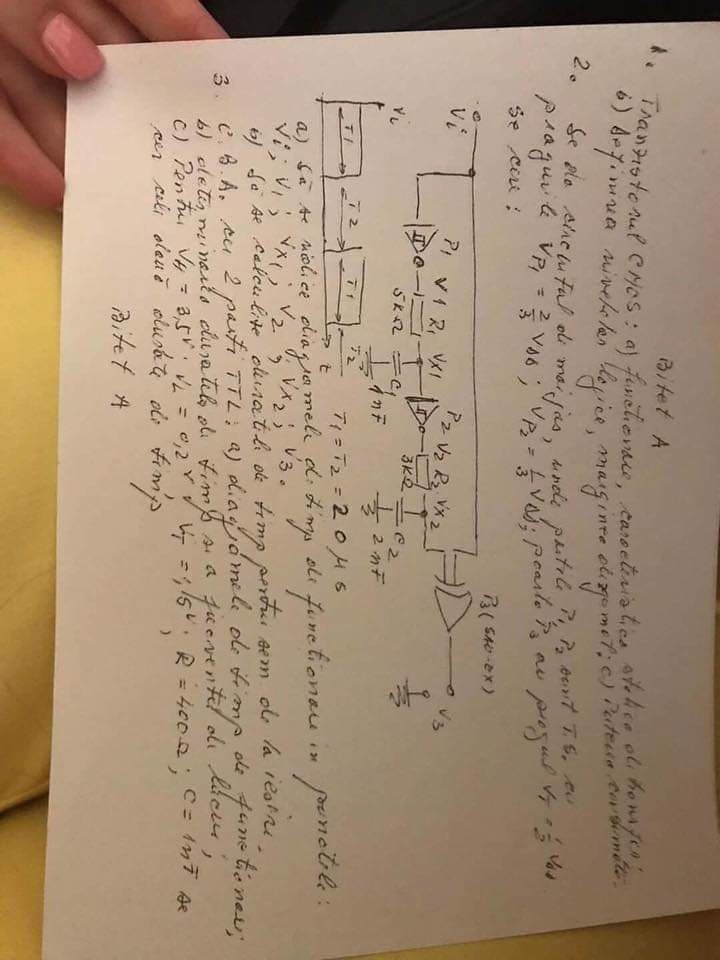 Bilet A
1. Tranzistorul CMOS: a) functionare, caracteristica statica de transfer;
b) Definirea nivelelor logice, marginea de zgomot; c) Puterea consumată.
2. Se da circuitul de mai jos, unde portile P1, P2 sunt T.S. cu
pragurile VP1 = 2/3 VDD; VP2 = 1/3 VDD; poarta P3 au pragul VT = 1/2 VDD
Se cere:
P3 (SAU-EX)
Vi P1 V1 R1 VX1 P2 V2 R2 VX2 V3
5KΩ C1 3KΩ C2
1nF 2nF
vi
T1 T2 T1 T2
t
T1 = T2 = 20 μs
a) Să se ridice diagramele de timp de functionare in punctele:
Vi; V1; VX1; V2; VX2; V3.
b) Să se calculeze duratele de timp pentru sem de la iesire.
3. C.B.A. cu 2 porti TTL: a) diagramele de timp de functionare;
b) determinarea duratelor de timp si a frecventei de lucru;
c) Pentru VH = 3,5V; VL = 0,2V; VT = 1,5V; R = 400Ω; C = 1nF se
cer cele două durate de timp
Bilet A